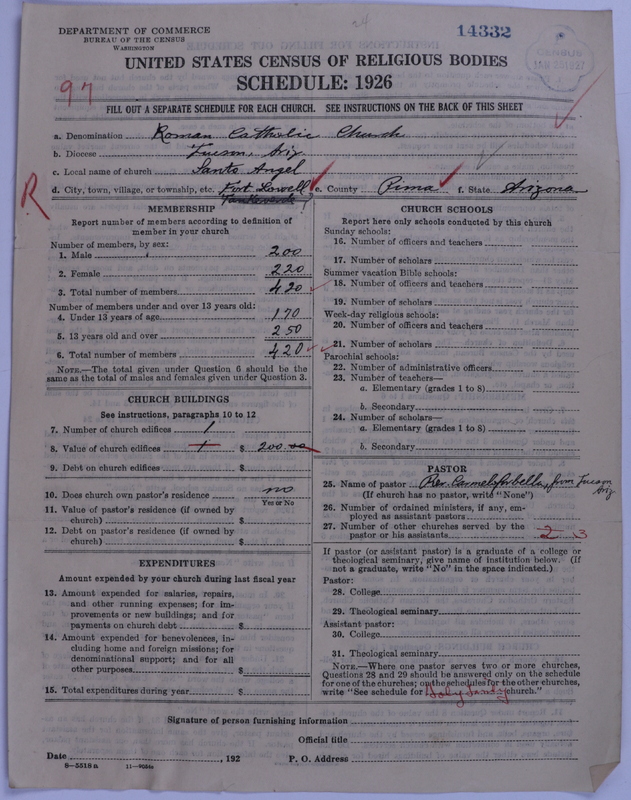 DEPARTMENT OF COMMERCE
BUREAU OF THE CENSUS
WASHINGTON
24
14332
CENSUS
JAN 25 1927
UNITED STATES CENSUS OF RELIGIOUS BODIES
SCHEDULE: 1926
97
FILL OUT A SEPARATE SCHEDULE FOR EACH CHURCH. SEE INSTRUCTIONS ON THE BACK OF THIS SHEET
a. Denomination Roman Catholic Church
b. Diocese Tucson, Ariz
c. Local name of church Santo Angel
d. City, town, village, or township, etc. Fort Lowell e. County Pima f. State Arizona
R
MEMBERSHIP
Report number of members according to definition of member in your church
Number of members, by sex:
1. Male 200
2. Female 220
3. Total number of members 420
Number of members under and over 13 years old:
4. Under 13 years of age 170
5. 13 years old and over 250
6. Total number of members 420
NOTE.—The total given under Question 6 should be the same as the total of males and females given under Question 3.
CHURCH BUILDINGS
See instructions, paragraphs 10 to 12
7. Number of church edifices 1
8. Value of church edifices 1 $ 200.00
9. Debt on church edifices $
10. Does church own pastor's residence no
Yes or No
11. Value of pastor's residence (if owned by church) $
12. Debt on pastor's residence (if owned by church) $
EXPENDITURES
Amount expended by your church during last fiscal year
13. Amount expended for salaries, repairs, and other running expenses; for improvements or new buildings; and for payments on church debt $
14. Amount expended for benevolences, including home and foreign missions; for denominational support; and for all other purposes $
15. Total expenditures during year $
CHURCH SCHOOLS
Report here only schools conducted by this church
Sunday schools:
16. Number of officers and teachers
17. Number of scholars
Summer vacation Bible schools:
18. Number of officers and teachers
19. Number of scholars
Week-day religious schools:
20. Number of officers and teachers
21. Number of scholars
Parochial schools:
22. Number of administrative officers
23. Number of teachers—
a. Elementary (grades 1 to 8)
b. Secondary
24. Number of scholars—
a. Elementary (grades 1 to 8)
b. Secondary
PASTOR
25. Name of pastor Rev. from Tucson Ariz
(If church has no pastor, write "None")
26. Number of ordained ministers, if any, employed as assistant pastors
27. Number of other churches served by the pastor or his assistants 2 3
If pastor (or assistant pastor) is a graduate of a college or theological seminary, give name of institution below. (If not a graduate, write "No" in the space indicated.)
Pastor:
28. College
29. Theological seminary
Assistant pastor:
30. College
31. Theological seminary
NOTE.—Where one pastor serves two or more churches, Questions 28 and 29 should be answered only on the schedule for one of the churches; on the schedules for the other churches, write "See schedule for Holy Family church."
Signature of person furnishing information
Official title
Date , 192 P. O. Address
8-5518 a 11-9034a